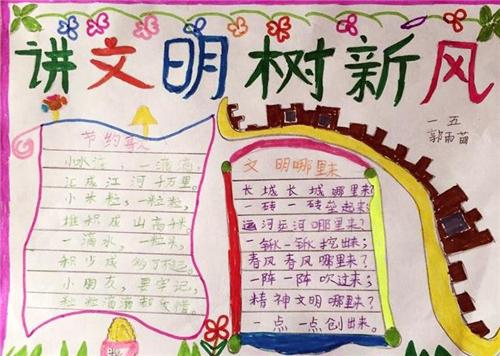 讲文明树新风
一五
郭雨苗
节约歌
小水滴,一滴滴,
汇成江河千万里。
小米粒,一粒粒,
堆积成山高千米。
一滴水,一粒米,
积少成多了不起。
小朋友,要牢记,
粒粒滴滴都爱惜。
文明哪里来
长城长城哪里来?
一砖一砖垒起来;
运河运河哪里来?
一锹一锹挖出来;
春风春风哪里来?
一阵一阵吹过来;
精神文明哪里来?
一点一点创出来。